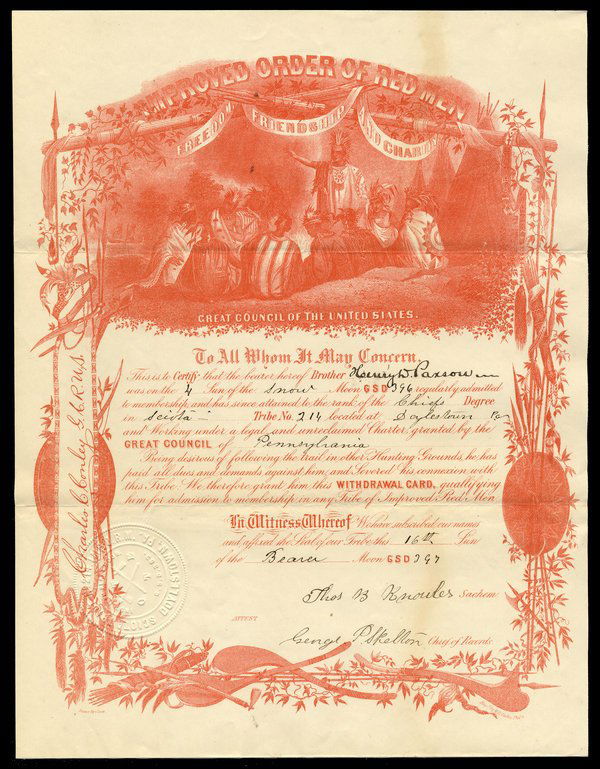 IMPROVED ORDER OF RED MEN
FREEDOM FRIENDSHIP AND CHARITY
GREAT COUNCIL OF THE UNITED STATES.
To All Whom It May Concern,
This is to Certify that the bearer hereof Brother Henry D. Paxson
was on the 4 Sun of the Snow Moon GSD 396 regularly admitted
to membership and has since attained to the rank of the Chiefs Degree
in Sciota Tribe No. 214 located at Doylestown Pa
and Working under a legal and unreclaimed Charter granted by the
GREAT COUNCIL of Pennsylvania
Being desirous of following the trail in other Hunting Grounds, he has
paid all dues and demands against him, and Severed his connexion with
this Tribe. We therefore grant him this WITHDRAWAL CARD, qualifying
him for admission to membership in any Tribe of Improved Red Men.
In Witness Whereof We have subscribed our names
and affixed the Seal of our Tribe this 16th Sun
of the Beaver Moon GSD 397
Thos B Knowles Sachem
ATTEST
George P Skelton Chief of Records.
Charles C Conley G.C.R.U.S.